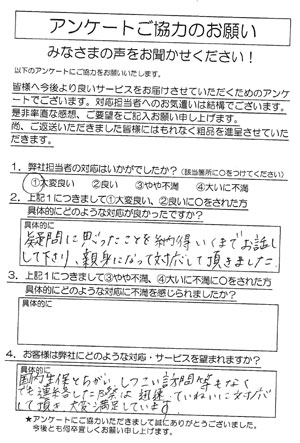 アンケートご協力のお願い
みなさまの声をお聞かせください！
以下のアンケートにご協力をお願いいたします。
皆様へ今後より良いサービスをお届けさせていただくためのアンケ
ートでございます。対応担当者へのお気遣いは結構でございます。
是非率直な感想、ご要望をご記入お願い申し上げます。
尚、ご返送いただきました皆様にはもれなく粗品を進呈させていた
だきます。
1．弊社担当者の対応はいかがでしたか？（該当箇所に○をつけてください）
①大変良い　②良い　③やや不満　④大いに不満
2．上記1につきまして①大変良い、②良いに○をされた方
具体的にどのような対応が良かったですか？
具体的に
疑問に思ったことを納得いくまでお話し
して下さり、親身になって対応して頂きました。
3．上記1につきまして③やや不満、④大いに不満に○をされた方
具体的にどのような対応に不満を感じられましたか？
具体的に
4．お客様は弊社にどのような対応・サービスを望まれますか？
具体的に
国内生保とちがい、しつこい訪問等もなく
でも連絡した際は迅速、ていねいに対応が
して頂け、大変満足しています
★アンケートにご協力いただきまして誠にありがとうございました。
今後とも何卒宜しくお願い申し上げます。